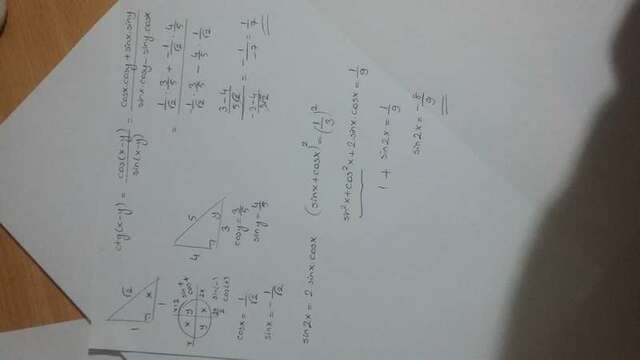 ctg(x-y) = cos(x-y)/sin(x-y) = (cosx.cosy + sinx.siny)/(sinx.cosy - siny.cosx)
= (1/√2 . 3/5 + -1/√2 . 4/5)/(1/√2 . 3/5 - 4/5 . 1/√2)
((3-4)/5√2)/((-3-4)/5√2) = -1/-7 = 1/7
1
√2
x
1
4
5
3
y
cosy = 3/5
siny = 4/5
cosx = 1/√2
sinx = -1/√2
sin2x = 2 sinx cosx
(sinx + cosx)² = (1/3)²
sin²x + cos²x + 2 sinx.cosx = 1/9
1 + sin2x = 1/9
sin2x = -8/9